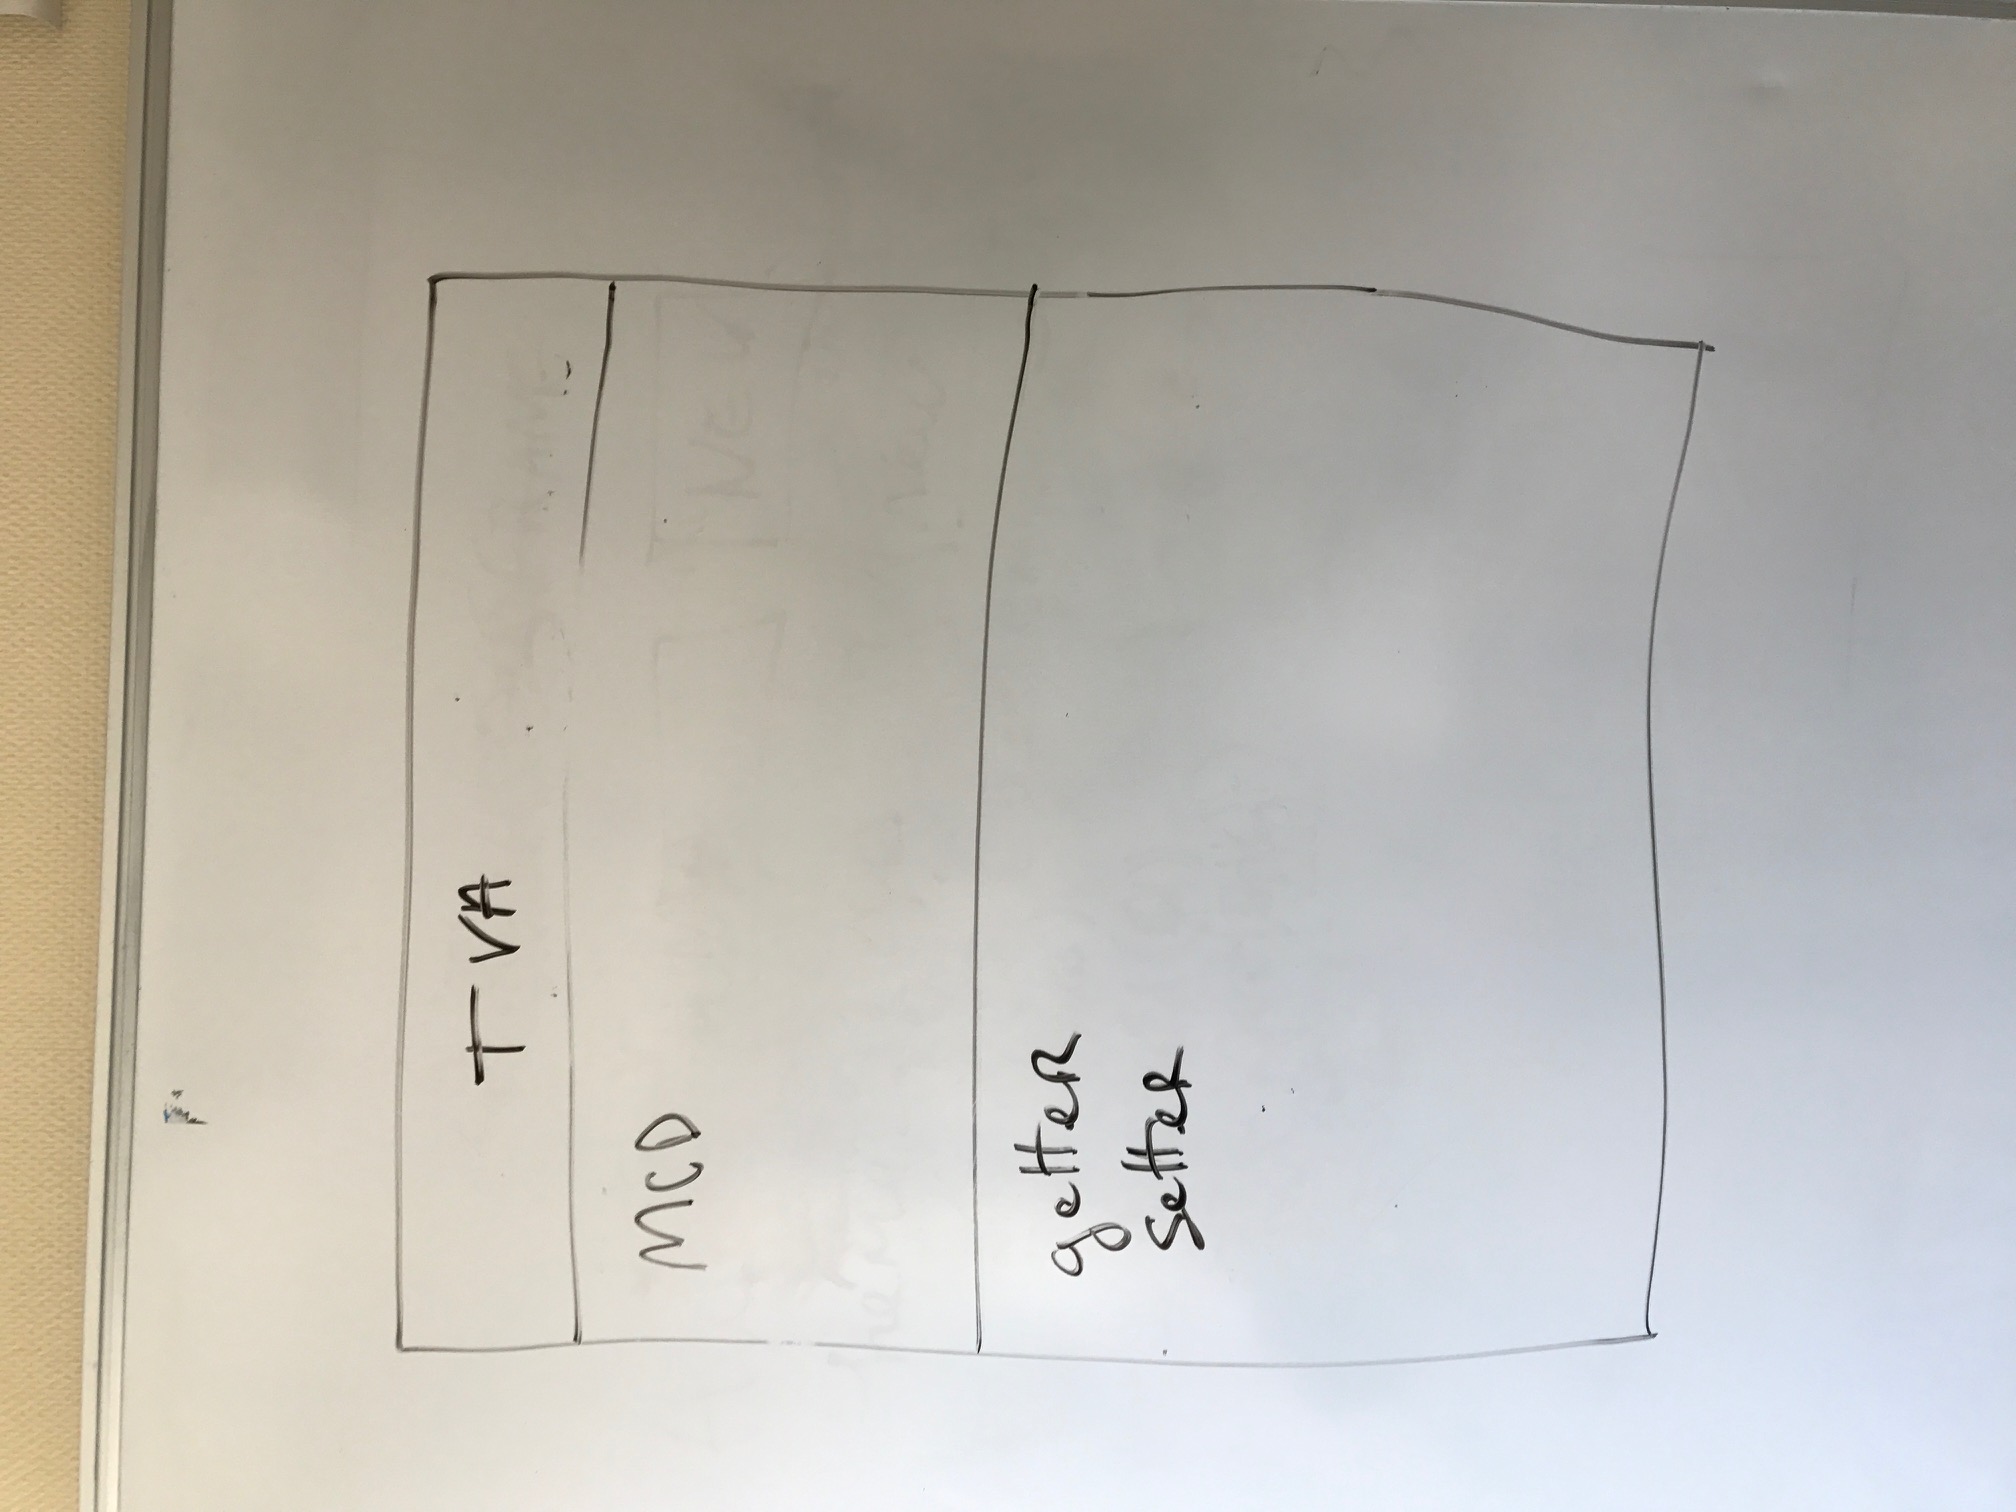 TVA
MCD
getter
setter